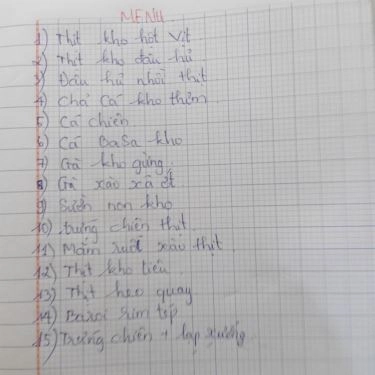 MENU
1) Thịt kho hột vịt
2) Thịt kho đậu hũ
3) Đậu hũ nhồi thịt
4) Chả Cá kho thơm
5) Cá chiên
6) Cá BaSa kho
7) Gà kho gừng
8) Gà xào xã ớt
9) Sườn non kho
10) trứng chiên thịt
11) Mắm ruốt xào thịt
12) Thịt kho tiêu
13) Thịt heo quay
14) Ba rọi rim tép
15) Trứng chiên + lạp xưởng